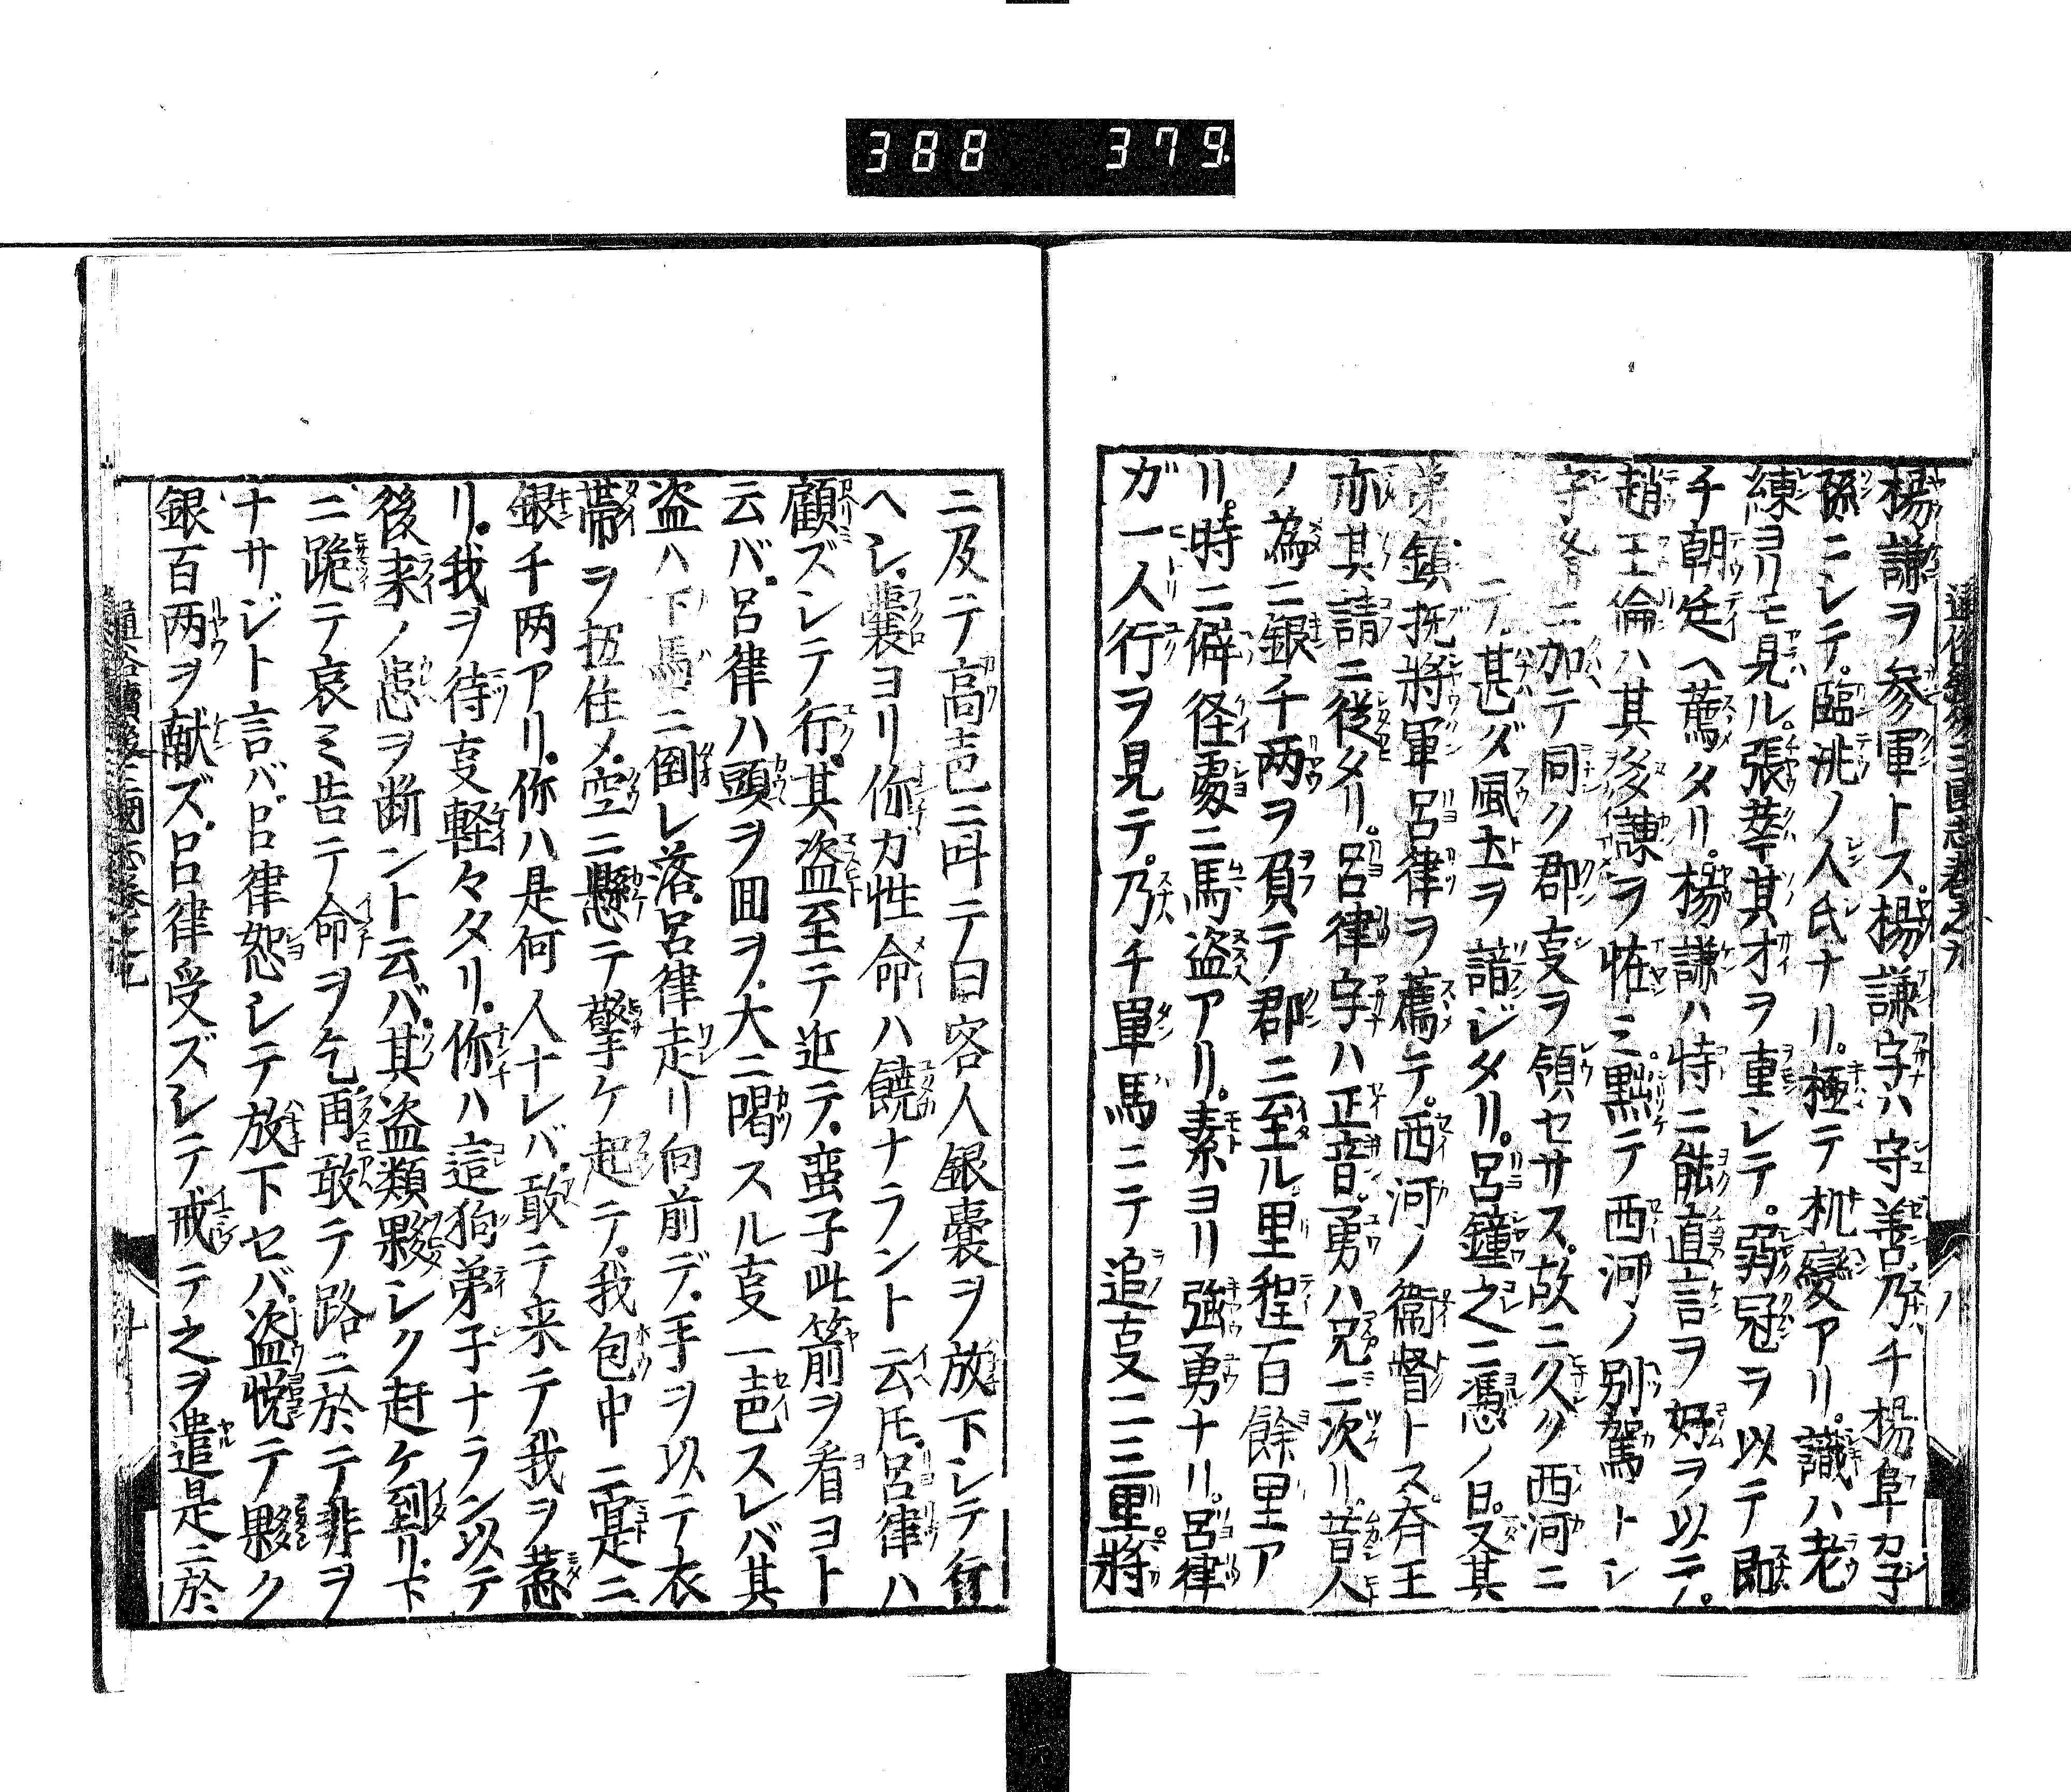 388 379.
楊謙ヲ参軍トス。楊謙字ハ守善、乃チ楊阜カ子
孫ニシテ。臨洮ノ人氏ナリ。極テ机變アリ。識ハ老
練ヨリモ見ル。張華其才ヲ重シテ。弱冠ヲ以テ即
チ朝廷ヘ薦メタリ。楊謙ハ恃ニ能直言ヲ好ヲ以テ。
趙王倫ハ其多諌ヲ恠ミ黙テ西河ノ別駕トシ
ニ加テ同ク郡叓ヲ領セサス。故ニ久ク西河ニ
テ。甚ダ風土ヲ諳ジタリ。呂鐘之ニ馮ノ日。又其
弟鎮撫將軍呂律ヲ薦テ。西河ノ衞督トス。斉王
亦其請ニ従タリ。呂律字ハ正音。勇ハ兄ニ次リ。昔人
ノ為ニ銀千两ヲ負テ郡ニ至ル。里程百餘里ア
リ。時ニ僻径處ニ馬盗アリ。素ヨリ強勇ナリ。呂律
ガ一人行ヲ見テ。乃チ單馬ニテ追叓二三里。將
ニ及テ高声ニ呌テ曰客人銀嚢ヲ放下シテ行
ヘシ。嚢ヨリ你カ性命ハ饒ナラント云圧。呂律ハ
顧ズシテ行。其盗至テ近テ。蛮子此箭ヲ看ヨト
云バ。呂律ハ頭ヲ囬ヲ。大ニ喝スル叓一声スレバ其
盗ハ下馬ニ倒レ落。呂律走リ向前デ。手ヲ以テ衣
帯ヲ扭住メ。空ニ懸テ擎ケ起テ。我包中ニ寔ニ
銀千两アリ。你ハ是何人ナレバ。敢テ来テ我ヲ惹
リ。我ヲ待叓軽々タリ。你ハ這狗弟子ナラン以テ
後来ノ患ヲ断ント云バ。其盗類夥シク赶ケ到リ。下
ニ跪テ哀ミ告テ命ヲ乞。再敢テ路ニ於テ非ヲ
ナサジト言バ呂律恕シテ放下セバ。盗悦テ夥ク
銀百两ヲ献ズ。呂律受ズシテ戒テ之ヲ遣是ニ於